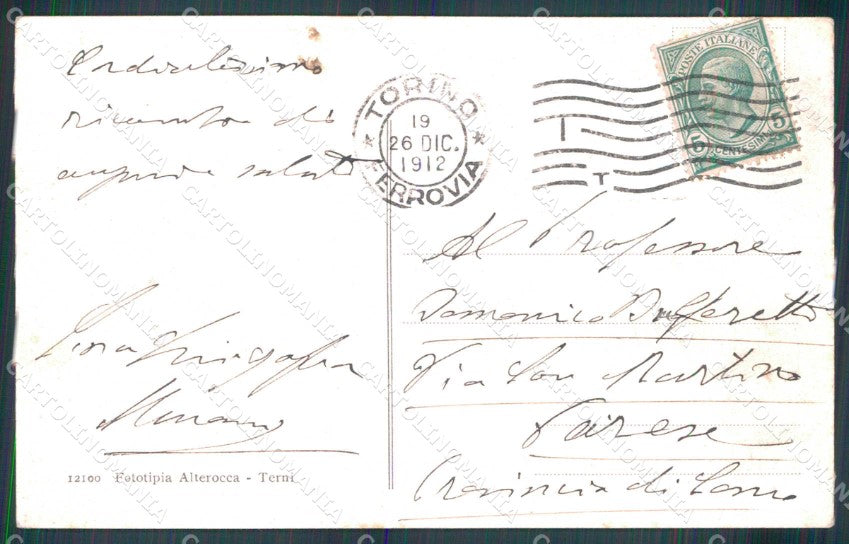 Cordialissimo
ricordo di
auguri e saluti
12100 Fototipia Alterocca - Terni
TORINO
19
26 DIC.
1912
FERROVIA
POSTE ITALIANE
5 5
CENTESIMI
Al Professore
Domenico
Via San Martino
Varese
Provincia di Como
CARTOLINOMANIA